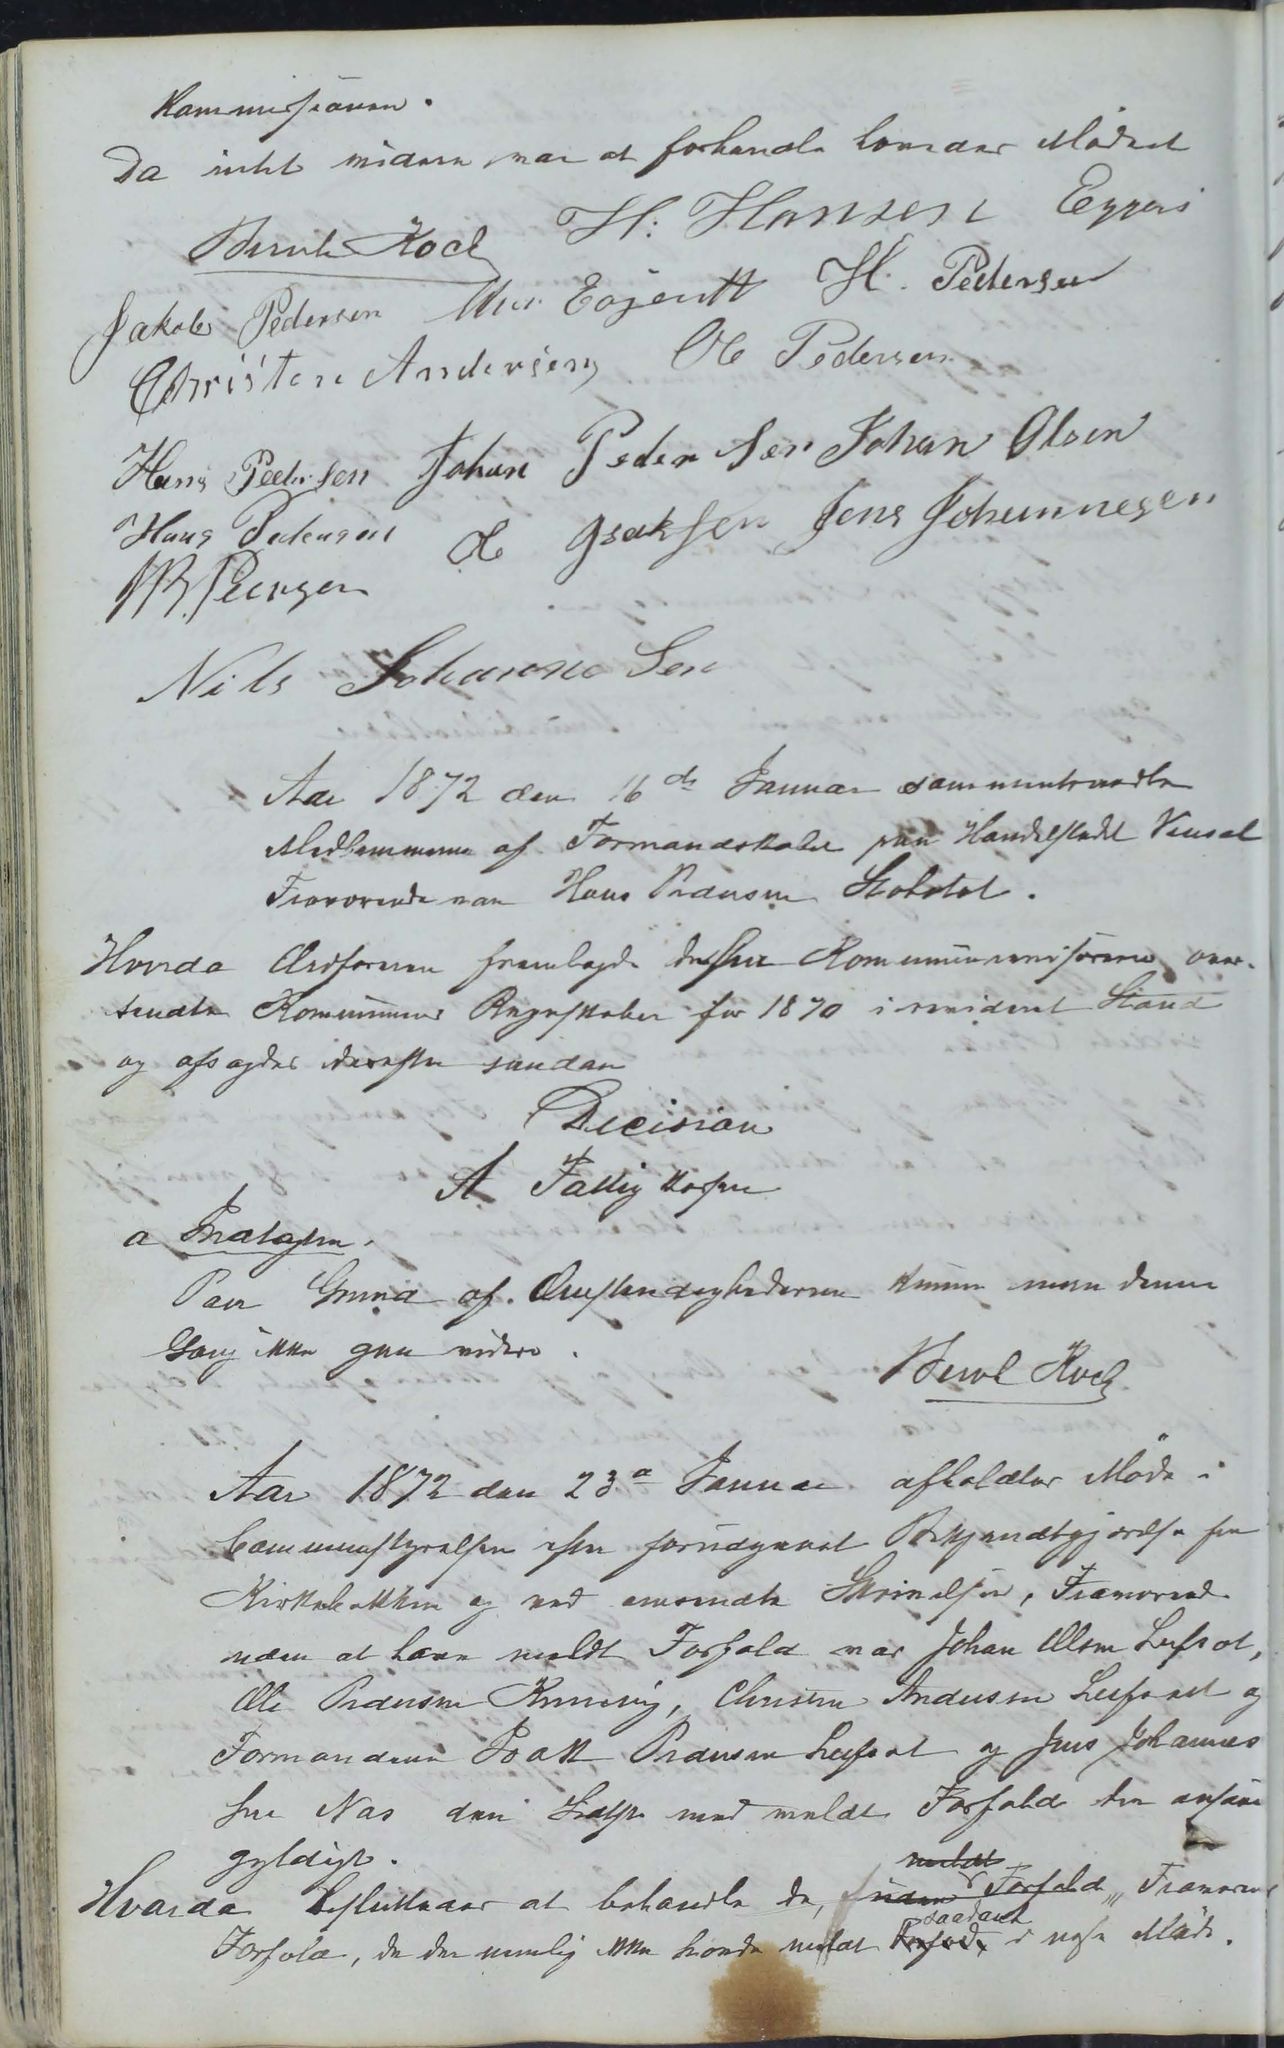 Kommissionen.
Da intet videre var at forhandle hævedes Mödet
Bernh Koch H. Hansen Eggers
Jakob Pedersen H. Pedersen
Christen Andersen Ole Pedersen
Hans Pedersen Johan Pedersen Johan Olsen
Hans Pedersen Ole Isaksen Jens Johannesen
Nils Johannesen
Aar 1872 den 16de Januar sammentraadte
Medlemmerne af Formandskabet paa Handelstedet
Fraværende var Hans Pedersen
Hvorda Ordföreren fremlagde de fra Kommunerevisorerne over-
sendte Kommunens Regnskaber for 1870 i revideret Stand
og afsagdes derefter saadan
Decision
A Fattigkassen
a Indtægten.
Paa Grund af Omstændighederne kunne man denne
Gang ikke gaa videre.
Bernh Koch
Aar 1872 den 23de Januar afholdtes Möde i
Communestyrelsen efter forudgaaet Bekjendtgjørelse fra
Kirkebakken og ved omsendte Skrivelser, Fraværende
uden at have meldt Forfald var Johan Olsen
Ole Pedersen Christen Andersen og
Formændene Pedersen og Jens Johannes
sen Næs den sidste med meldt Forfald der ansaaes
gyldigt.
Hvorda Besluttedes at behandle de, uden meldt Forfald, Fraværendes
Forfald, de der nemlig ikke havde meldt saadant i næste Möde.